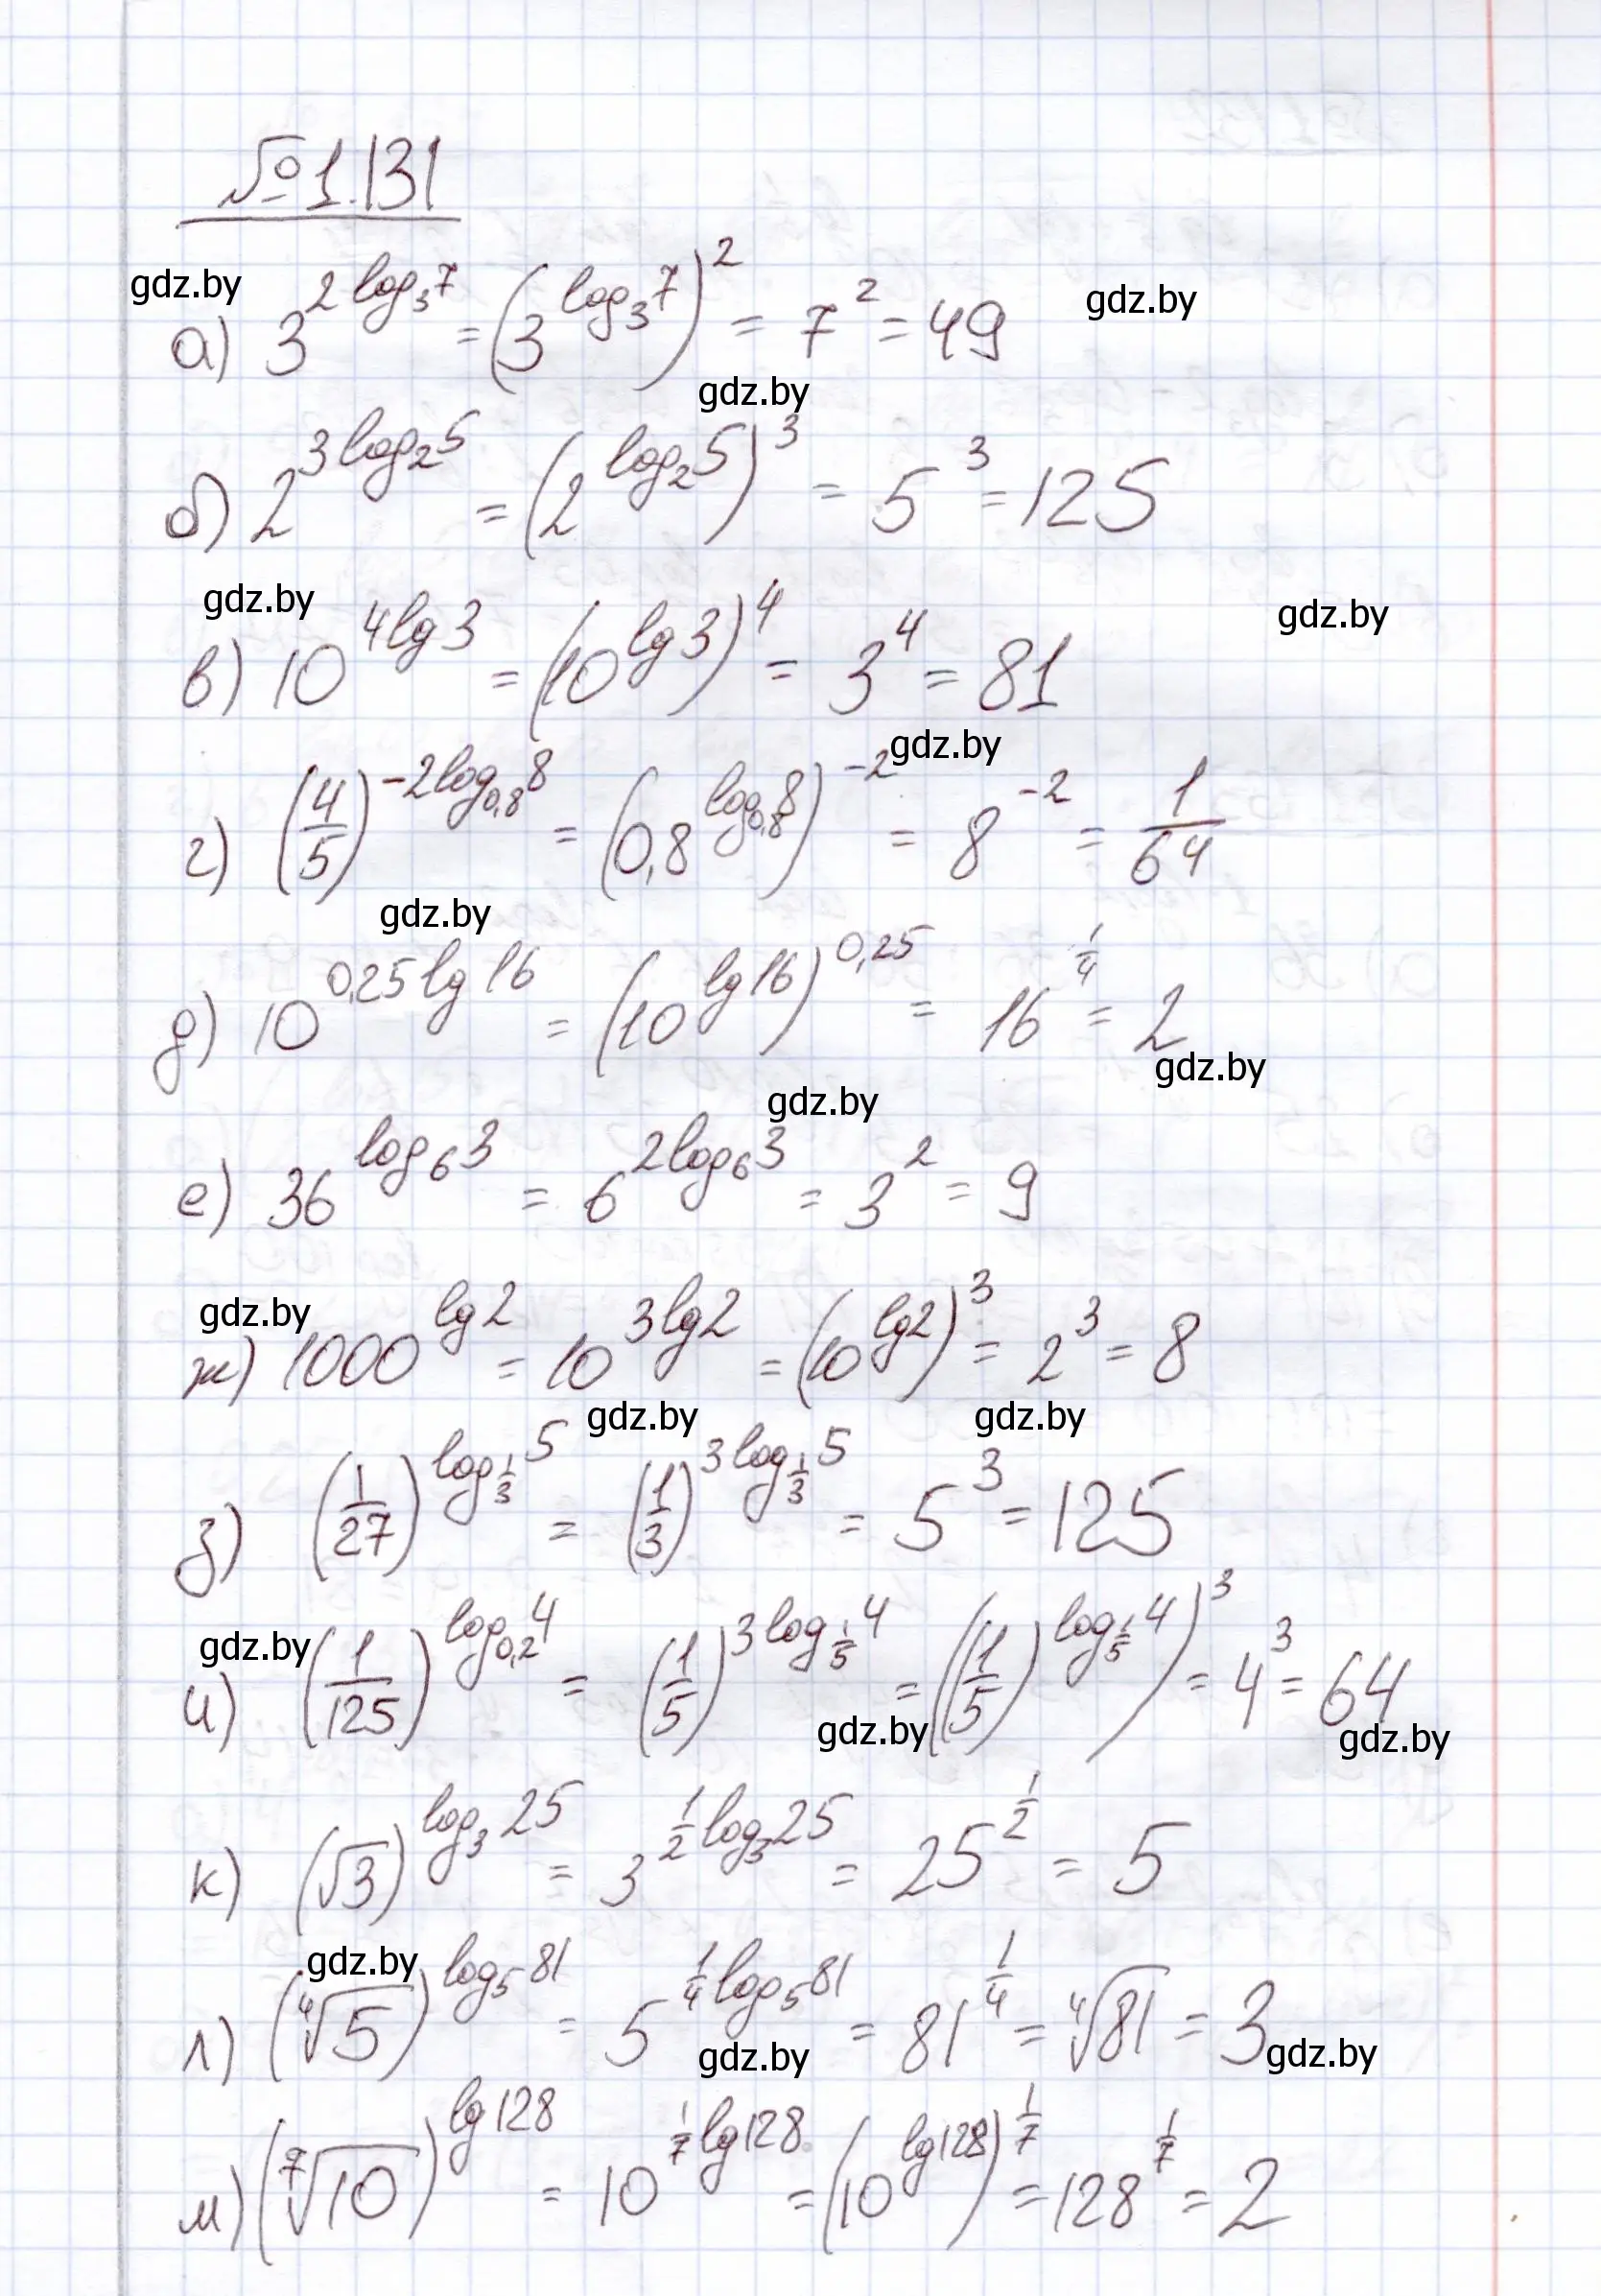 №1.131
gdz.by
gdz.by
а) 3^(2log₃7) = (3^(log₃7))² = 7² = 49
gdz.by
б) 2^(3log₂5) = (2^(log₂5))³ = 5³ = 125
gdz.by
gdz.by
в) 10^(4lg3) = (10^(lg3))⁴ = 3⁴ = 81
gdz.by
г) (4/5)^(-2log_0,8 8) = (0,8^(log_0,8 8))^-2 = 8^-2 = 1/64
gdz.by
д) 10^(0,25lg16) = (10^(lg16))^0,25 = 16^(1/4) = 2
gdz.by
gdz.by
е) 36^(log₆3) = 6^(2log₆3) = 3² = 9
gdz.by
ж) 1000^(lg2) = 10^(3lg2) = (10^(lg2))³ = 2³ = 8
gdz.by
gdz.by
з) (1/27)^(log_1/3 5) = (1/3)^(3log_1/3 5) = 5³ = 125
gdz.by
и) (1/125)^(log_0,2 4) = (1/5)^(3log_1/5 4) = ((1/5)^(log_1/5 4))³ = 4³ = 64
gdz.by
gdz.by
к) (√3)^(log₃25) = 3^(1/2 log₃25) = 25^(1/2) = 5
gdz.by
л) (⁴√5)^(log₅81) = 5^(1/4 log₅81) = 81^(1/4) = ⁴√81 = 3
gdz.by
gdz.by
м) (⁷√10)^(lg128) = 10^(1/7 lg128) = (10^(lg128))^(1/7) = 128^(1/7) = 2